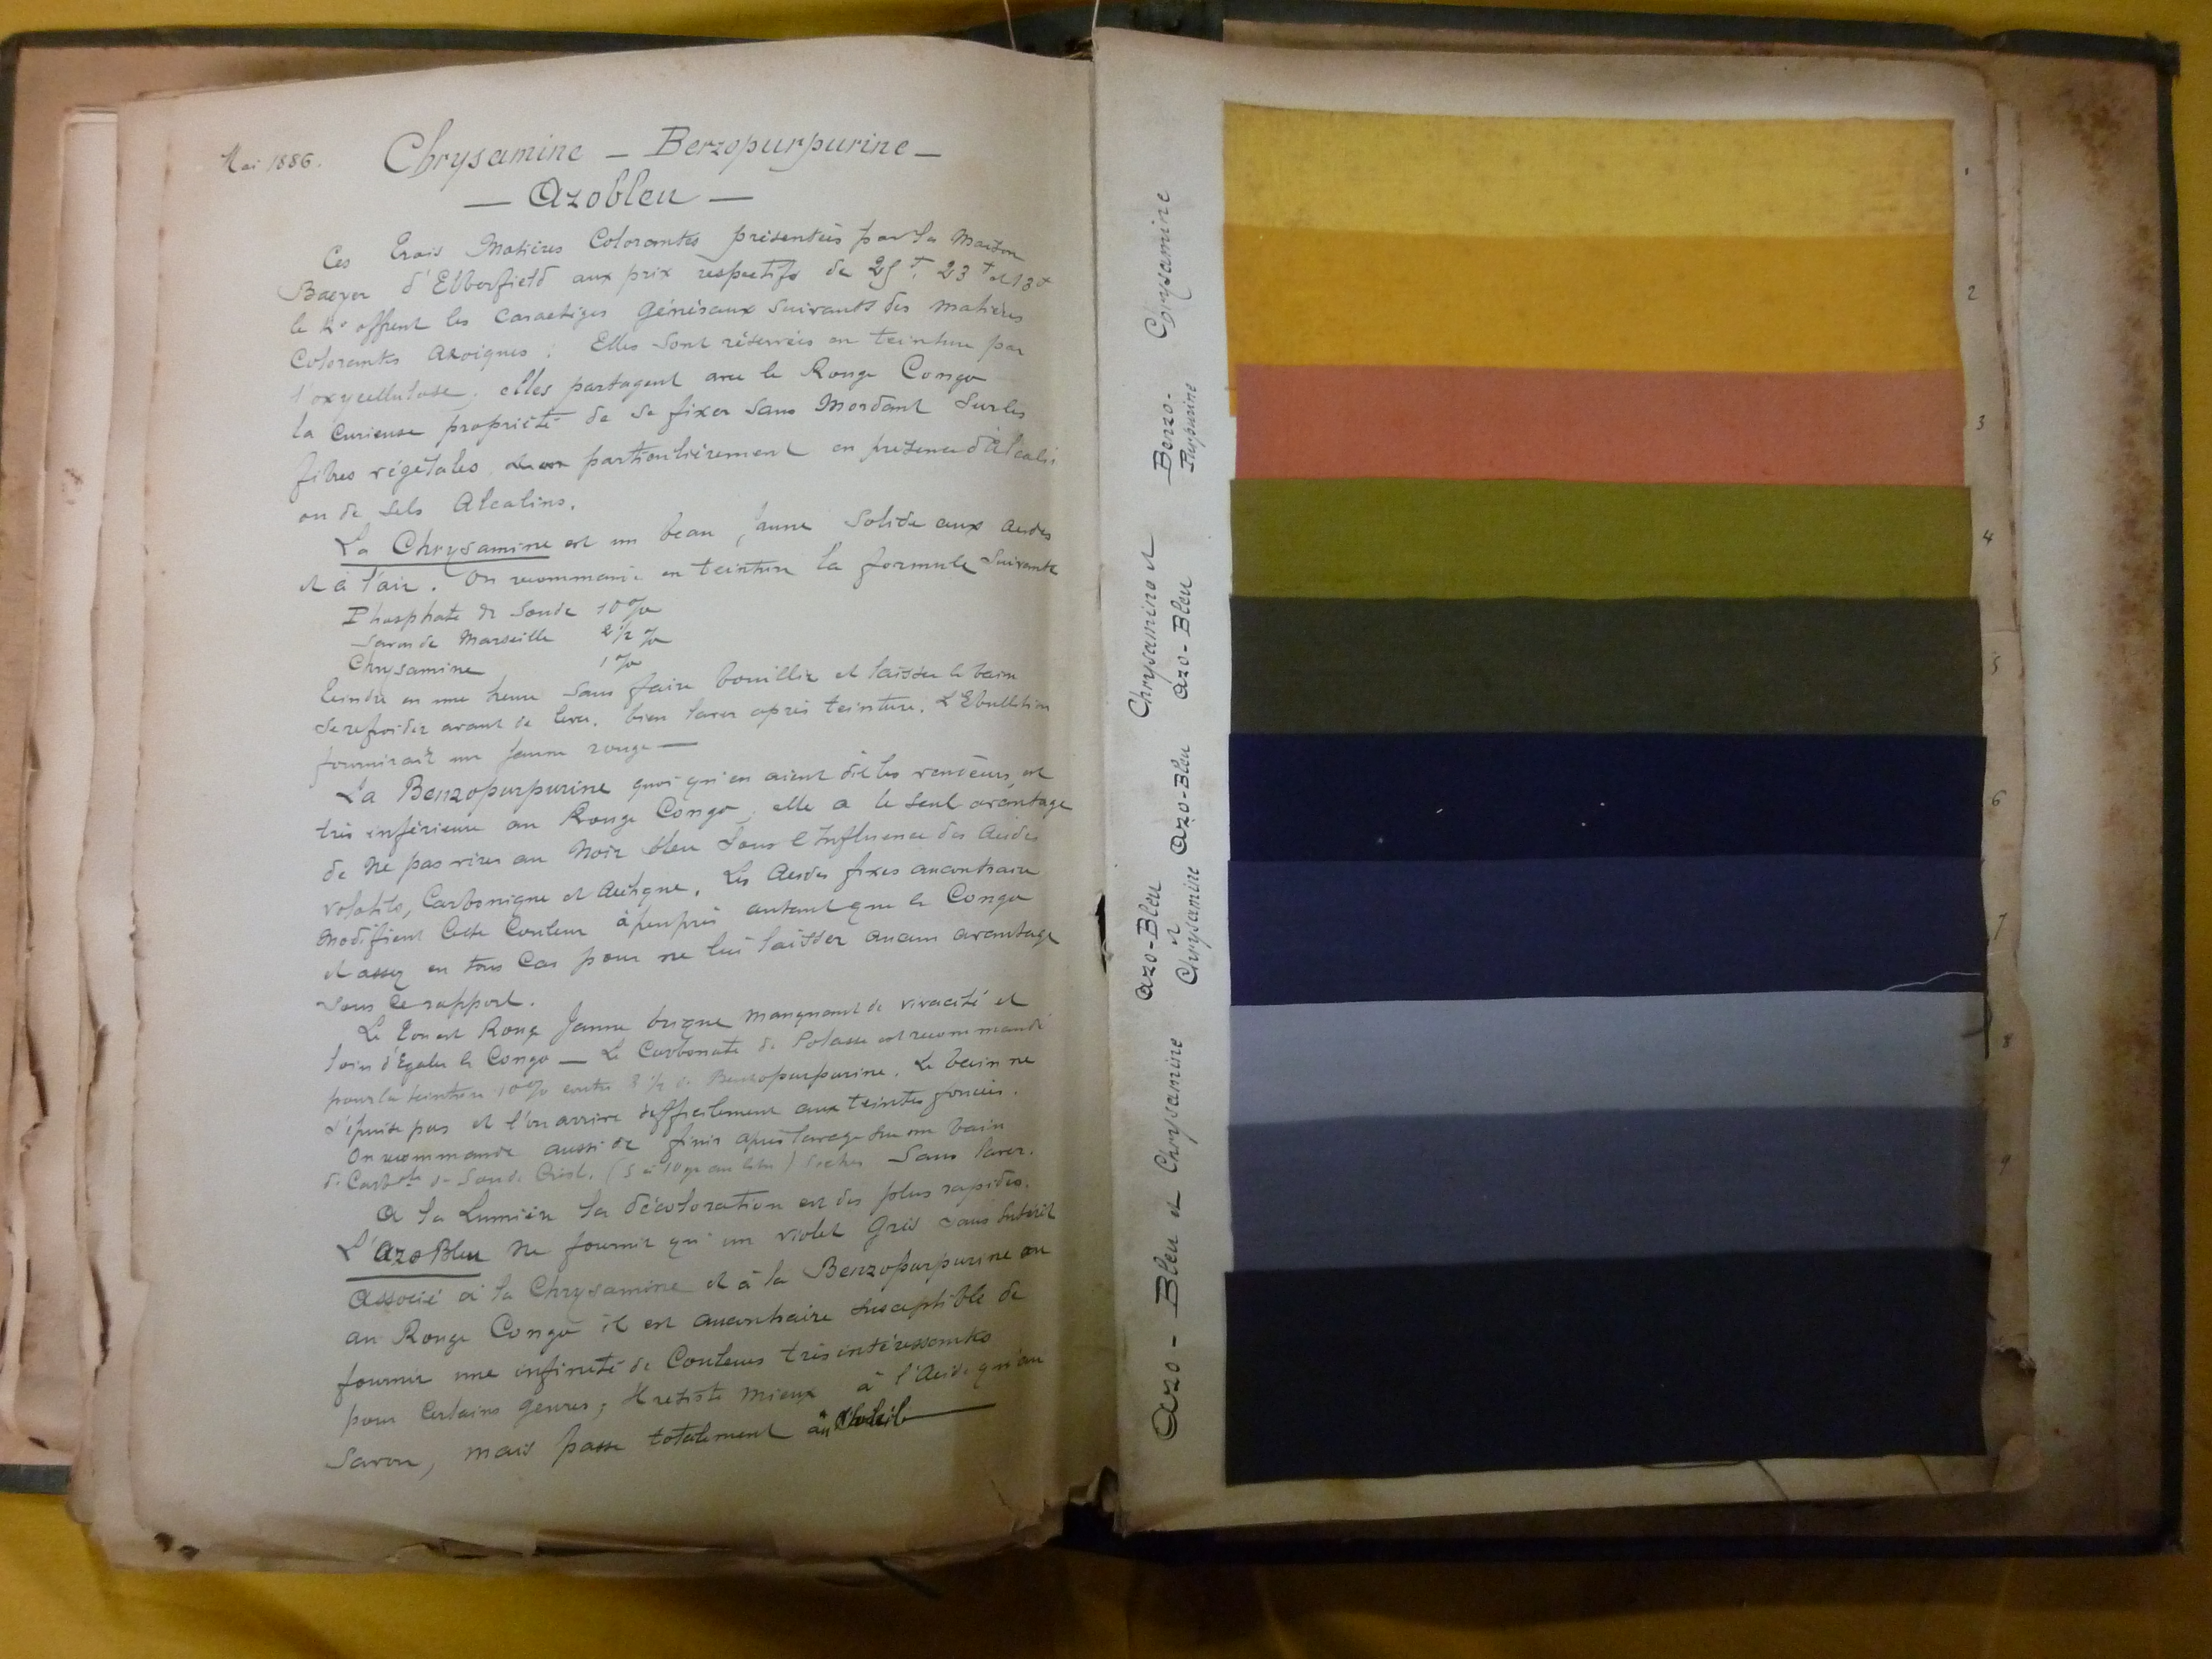 Mai 1886.
Chrysamine — Benzopurpurine —
— Azobleu —
Ces trois Matières Colorantes présentées par la Maison
Baeyer d'Elberfield aux prix respectifs de 25f, 23f et 13f
le Ko offrent les caractères Généraux suivants des matières
Colorantes Azoiques : Elles sont réservées en teinture par
l'oxycellulose, elles partagent avec le Rouge Congo
la curieuse propriété de se fixer sans Mordant sur les
fibres végétales particulièrement en présence d'Alcalis
ou de sels Alcalins.
La Chrysamine est un beau jaune solide aux acides
et à l'air. On recommande en teinture la formule suivante
Phosphate de Soude 10 %
Savon de Marseille 2 1/2 %
Chrysamine 1 %
teindre en une heure sans faire bouillir et laisser le bain
se refroidir avant de lever, bien laver après teinture. L'Ebullition
fournirait un jaune rouge —
La Benzopurpurine quoi qu'en aient dit les vendeurs, est
très inférieure au Rouge Congo, elle a le seul avantage
de ne pas virer au Noir bleu sous l'Influence des Acides
volatils, Carbonique et Acétique. Les Acides fixes au contraire
modifient cette Couleur à peu près autant que le Congo
et assez en tous cas pour ne lui laisser aucun avantage
sous ce rapport.
Le ton est Rouge Jaune brique manquant de vivacité et
loin d'égaler le Congo — Le Carbonate de Potasse est recommandé
pour la teinture 10% contre 2 1/2 de Benzopurpurine. Le bain ne
s'épuise pas et l'on arrive difficilement aux teintes foncées.
On recommande aussi de finir après lavage sur un bain
de Carbte de Soude Crist. (5 à 10 gr au litre) Sécher Sans laver.
A la Lumière la décoloration est des plus rapides.
L'Azo Bleu ne fournit qu'un violet Gris sans Intérêt
Associé à la Chrysamine et à la Benzopurpurine ou
au Rouge Congo il est au contraire susceptible de
fournir une infinité de Couleurs très intéressantes
pour certains genres, Il résiste mieux à l'Acide qu'au
Savon, mais passe totalement au Soleil —
Chrysamine
Benzo-
Purpurine
Chrysamine et
Azo-Bleu
Azo-Bleu
Azo-Bleu
et
Chrysamine
Azo-Bleu et Chrysamine
2
3
4
5
6
7
8
9